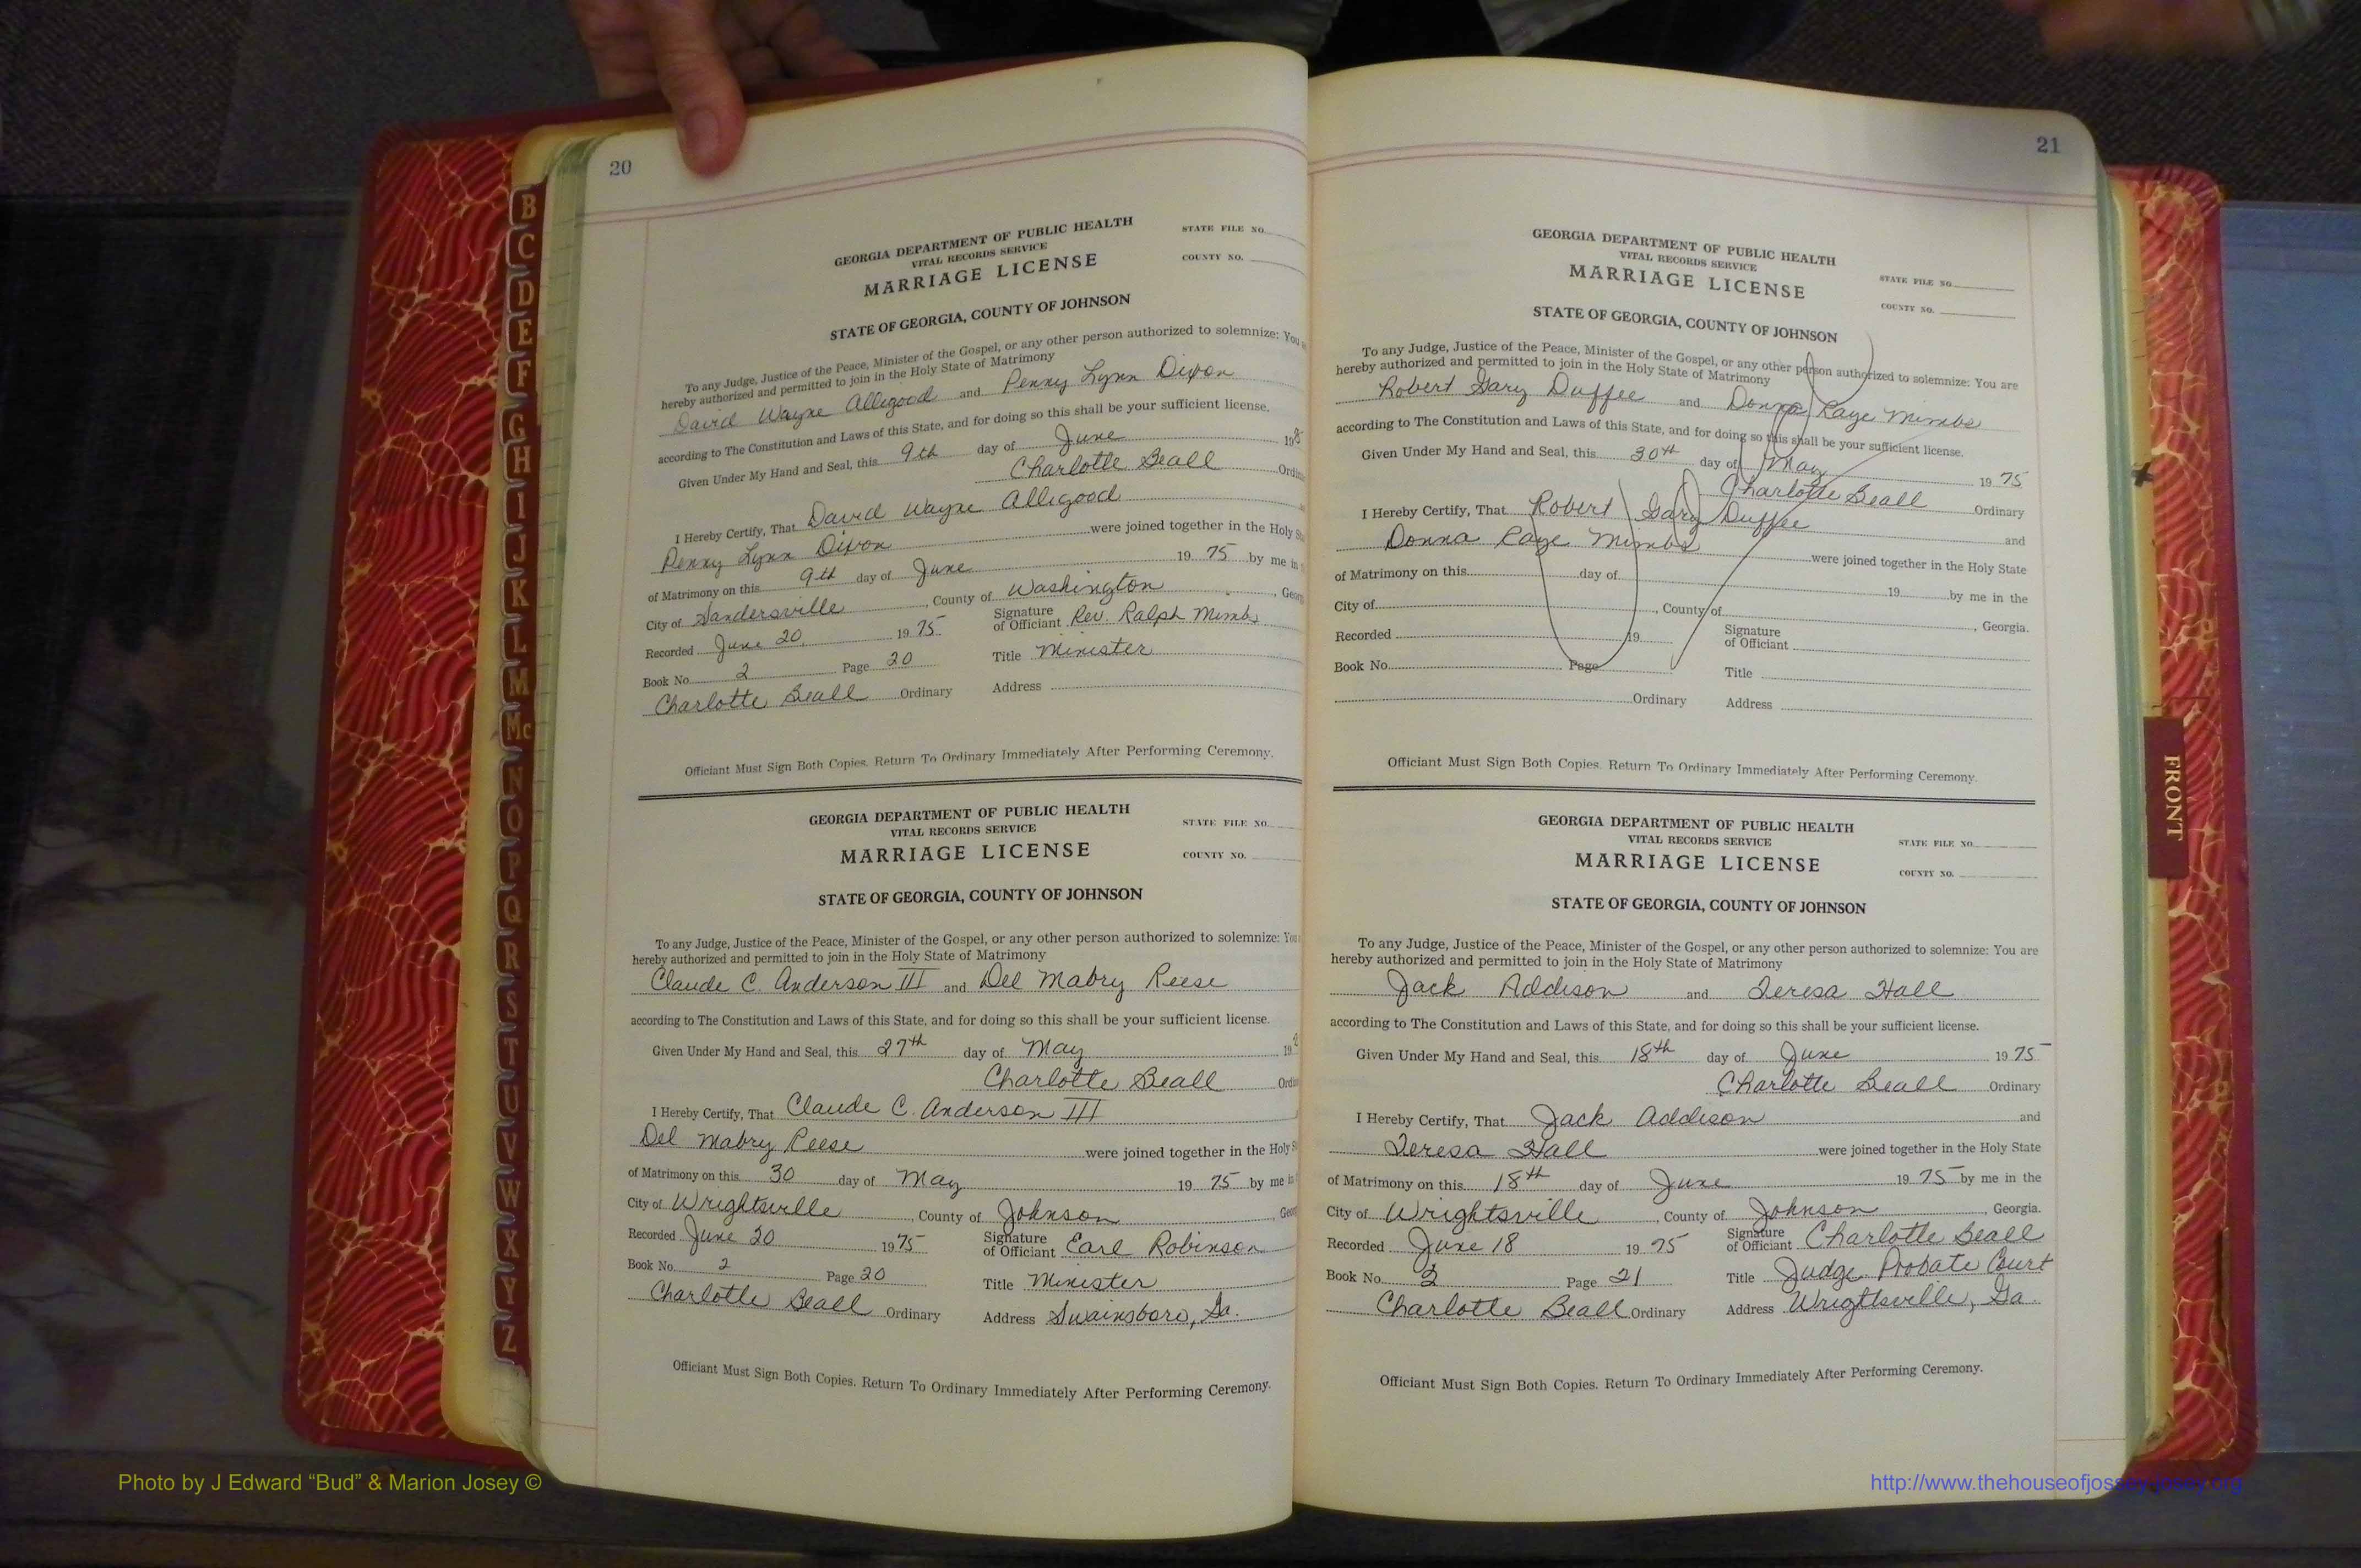 20
GEORGIA DEPARTMENT OF PUBLIC HEALTH
VITAL RECORDS SERVICE
MARRIAGE LICENSE
STATE FILE NO.
COUNTY NO.
STATE OF GEORGIA, COUNTY OF JOHNSON
To any Judge, Justice of the Peace, Minister of the Gospel, or any other person authorized to solemnize: You
hereby authorized and permitted to join in the Holy State of Matrimony
David Wayne Alligood and Penny Lynn Dixon
according to The Constitution and Laws of this State, and for doing so this shall be your sufficient license.
Given Under My Hand and Seal, this 9th day of June 19
Charlotte Beall
I Hereby Certify, That David Wayne Alligood
Penny Lynn Dixon were joined together in the Holy
of Matrimony on this 9th day of June 19 75 by me in
City of Sandersville, County of Washington
Recorded June 20, 19 75 Signature of Officiant Rev. Ralph Mimbs
Book No. 2 Page 20 Title Minister
Charlotte Beall Ordinary Address
Officiant Must Sign Both Copies. Return To Ordinary Immediately After Performing Ceremony.
GEORGIA DEPARTMENT OF PUBLIC HEALTH
VITAL RECORDS SERVICE
MARRIAGE LICENSE
STATE FILE NO.
COUNTY NO.
STATE OF GEORGIA, COUNTY OF JOHNSON
To any Judge, Justice of the Peace, Minister of the Gospel, or any other person authorized to solemnize: You
hereby authorized and permitted to join in the Holy State of Matrimony
Claude C. Anderson III and Del Mabry Reese
according to The Constitution and Laws of this State, and for doing so this shall be your sufficient license.
Given Under My Hand and Seal, this 27th day of May 19
Charlotte Beall
I Hereby Certify, That Claude C. Anderson III
Del Mabry Reese were joined together in the Holy
of Matrimony on this 30 day of May 19 75 by me in
City of Wrightsville, County of Johnson
Recorded June 20 19 75 Signature of Officiant Earl Robinson
Book No. 2 Page 20 Title Minister
Charlotte Beall Ordinary Address Swainsboro, Ga.
Officiant Must Sign Both Copies. Return To Ordinary Immediately After Performing Ceremony.
21
GEORGIA DEPARTMENT OF PUBLIC HEALTH
VITAL RECORDS SERVICE
MARRIAGE LICENSE
STATE FILE NO.
COUNTY NO.
STATE OF GEORGIA, COUNTY OF JOHNSON
To any Judge, Justice of the Peace, Minister of the Gospel, or any other person authorized to solemnize: You are
hereby authorized and permitted to join in the Holy State of Matrimony
Robert Gary Duffee and Donna Raye Mimbs
according to The Constitution and Laws of this State, and for doing so this shall be your sufficient license.
Given Under My Hand and Seal, this 30th day of May 19 75
Charlotte Beall Ordinary
I Hereby Certify, That Robert Gary Duffee and
Donna Raye Mimbs were joined together in the Holy State
of Matrimony on this day of 19 by me in the
City of , County of , Georgia.
Recorded 19 Signature of Officiant
Book No. Page Title
Ordinary Address
Officiant Must Sign Both Copies. Return To Ordinary Immediately After Performing Ceremony.
GEORGIA DEPARTMENT OF PUBLIC HEALTH
VITAL RECORDS SERVICE
MARRIAGE LICENSE
STATE FILE NO.
COUNTY NO.
STATE OF GEORGIA, COUNTY OF JOHNSON
To any Judge, Justice of the Peace, Minister of the Gospel, or any other person authorized to solemnize: You are
hereby authorized and permitted to join in the Holy State of Matrimony
Jack Addison and Teresa Hall
according to The Constitution and Laws of this State, and for doing so this shall be your sufficient license.
Given Under My Hand and Seal, this 18th day of June 19 75
Charlotte Beall Ordinary
I Hereby Certify, That Jack Addison and
Teresa Hall were joined together in the Holy State
of Matrimony on this 18th day of June 19 75 by me in the
City of Wrightsville, County of Johnson, Georgia.
Recorded June 18 19 75 Signature of Officiant Charlotte Beall
Book No. 2 Page 21 Title Judge Probate Court
Charlotte Beall Ordinary Address Wrightsville, Ga.
Officiant Must Sign Both Copies. Return To Ordinary Immediately After Performing Ceremony.
B
C
D
E
F
G
H
I
J
K
L
M
Mc
N
O
P
Q
R
S
T
U
V
W
X
Y
Z
FRONT
Photo by J Edward “Bud” & Marion Josey ©
http://www.thehouseofjossey-josey.org